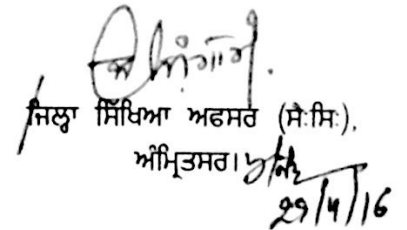 ਜਿਲ੍ਹਾ ਸਿੱਖਿਆ ਅਫਸਰ (ਸੈ:ਸਿ:),
ਅੰਮ੍ਰਿਤਸਰ।
29/4/16